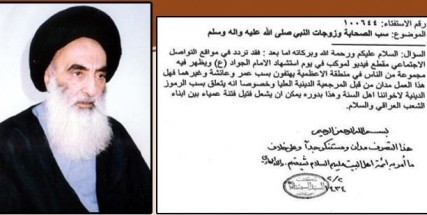 رقم الاستفتاء: ١٠٠٦٤٤
الموضوع: سب الصحابة وزوجات النبي صلى الله عليه واله وسلم
السؤال: السلام عليكم ورحمة الله وبركاته اما بعد : فقد تردد في مواقع التواصل
الاجتماعي مقطع فيديو لموكب في يوم استشهاد الامام الجواد (ع) ويظهر فيه
مجموعة من الناس في منطقة الاعظمية يهتفون بسب عمر وعائشة وغيرهما فهل
هذا العمل مدان من قبل المرجعية الدينية العليا وخصوصا انه يتعلق بسب الرموز
الدينية لاخواننا اهل السنة وهذا بدوره يمكن ان يشعل فتيل فتنة عمياء بين ابناء
الشعب العراقي والسلام.
بسم الله الرحمن الرحيم
هذا التصرف مدان ومستنكر جداً وعلى خلاف
ما أمر به ائمة اهل البيت عليهم السلام شيعتهم